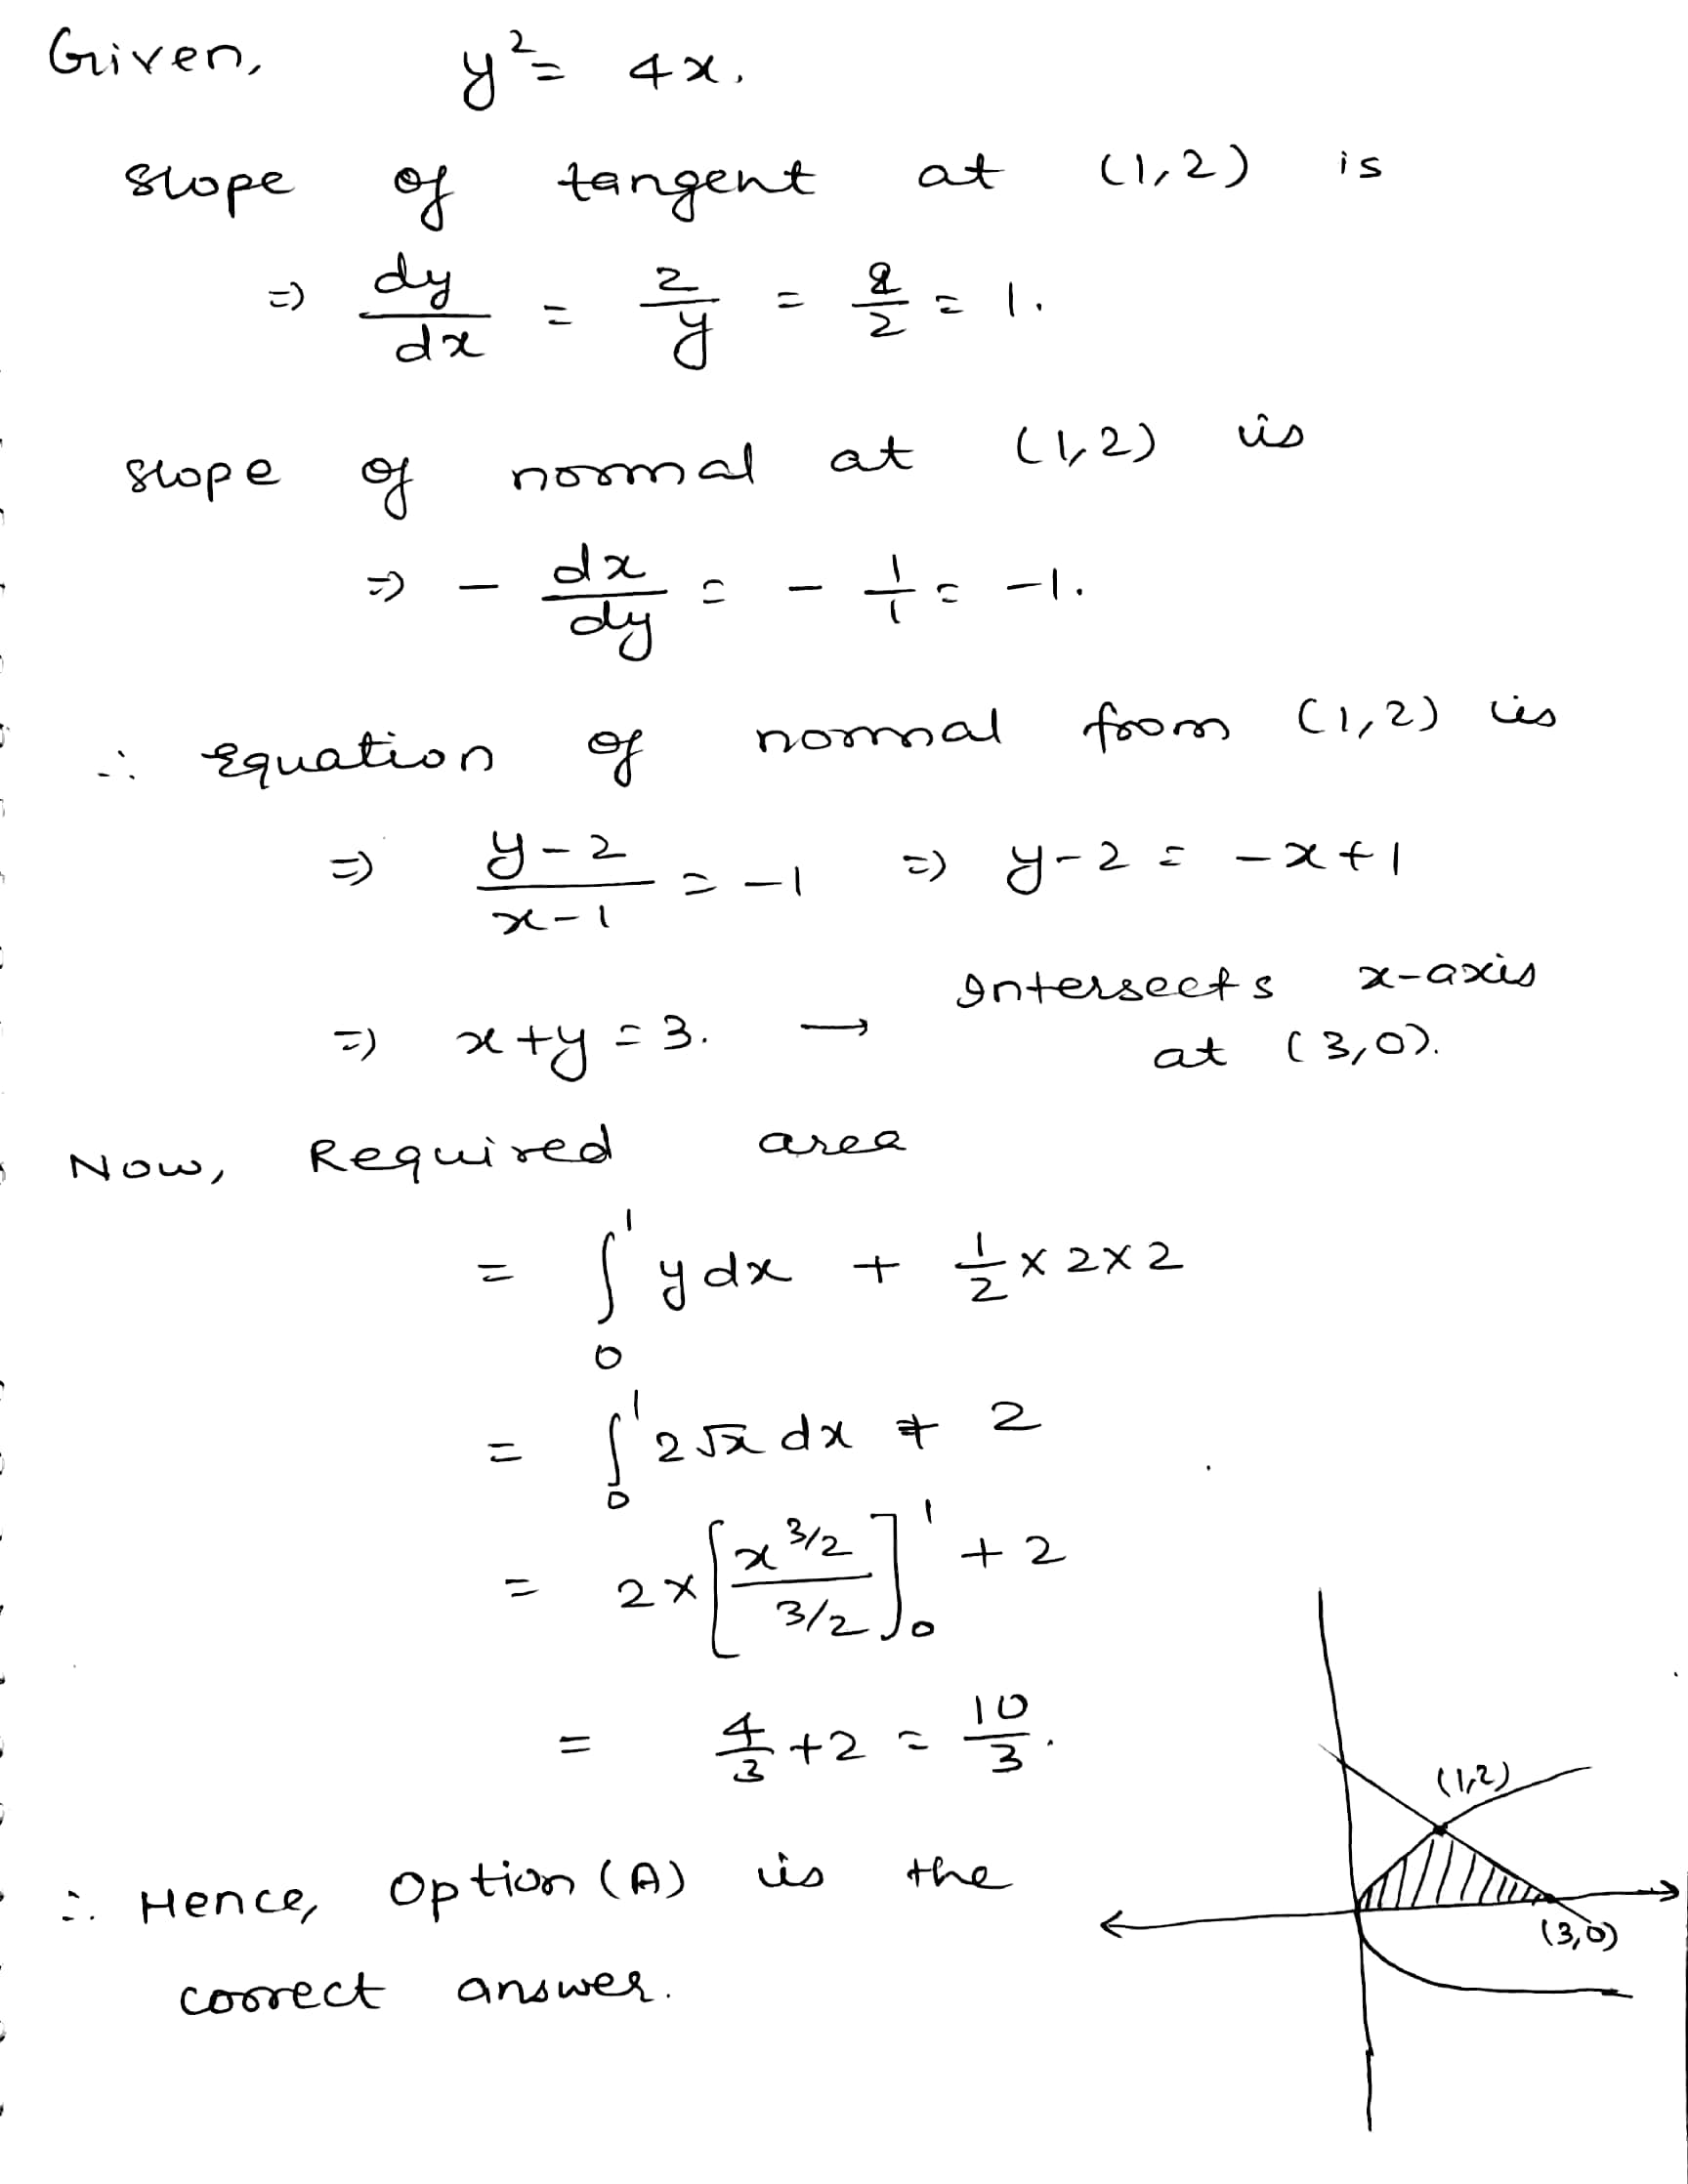 Given, y² = 4x.
slope of tangent at (1,2) is
⇒ dy/dx = 2/y = 2/2 = 1.
slope of normal at (1,2) is
⇒ - dx/dy = - 1/1 = -1.
∴ Equation of normal from (1,2) is
⇒ y-2/x-1 = -1 ⇒ y-2 = -x+1
⇒ x+y = 3. → Intersects x-axis
at (3,0).
Now, Required area
= ∫₀¹ y dx + 1/2 × 2×2
= ∫₀¹ 2√x dx + 2
= 2×[x^3/2 / 3/2]₀¹ + 2
= 4/3 + 2 = 10/3.
(1,2)
∴ Hence, Option (A) is the
(3,0)
correct answer.